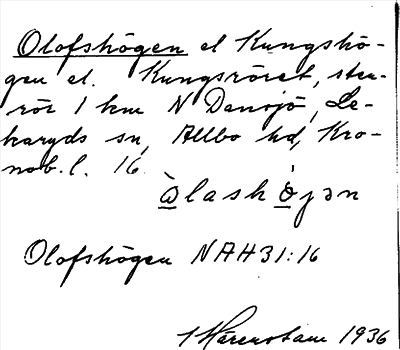 Olofshögen el Kungshö-
gen el. Kungsröret, sten-
rör 1 km N Dansjö, Le-
karyds sn, Allbo hd, Kro-
nob. l. 16
àlashöjən
Olofshögen NAH31:16
1936